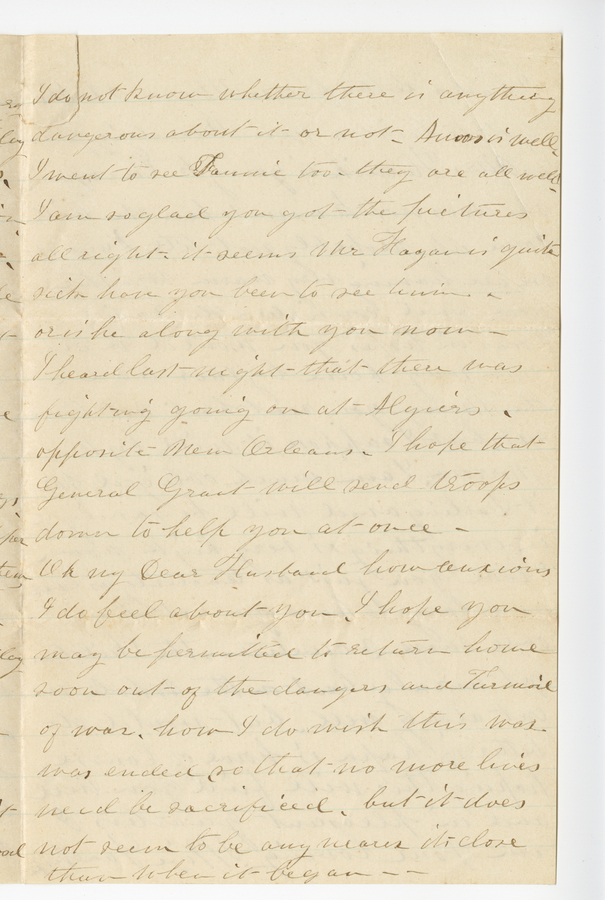 I do not know whether there is anything
dangerous about it or not - is well -
I went to see Fannie too - they are all well
I am so glad you got the pictures
all right - it seems Mr Hagan is quite
sick have you been to see him .
or is he along with you now -
I heard last night that there was
fighting going on at Algiers .
opposite New Orleans . I hope that
General Grant will send troops
down to help you at once -
Oh my Dear Husband how anxious
I do feel about you , I hope you
may be permitted to return home
soon out of the dangers and Turmoil
of war . how I do wish this war
was ended so that no more lives
need be sacrificed . but it does
not seem to be any nearer its close
than when it began - -